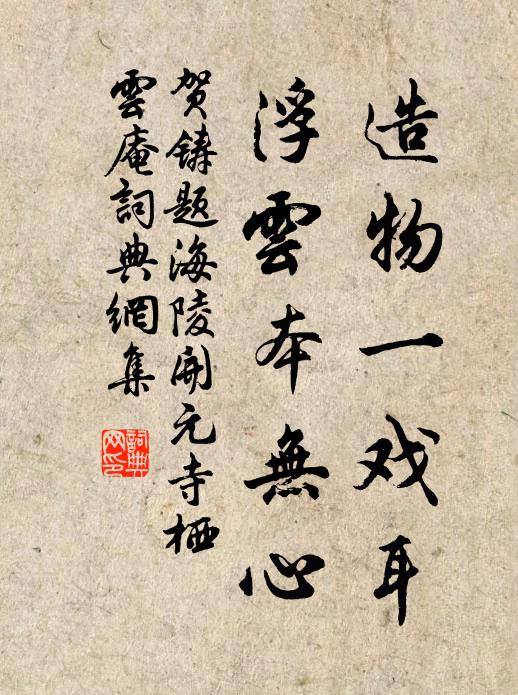 造物一戏耳
浮雲本無心
贺鑄题海陵開元寺栖
雲庵詞典網集
詞典
网印